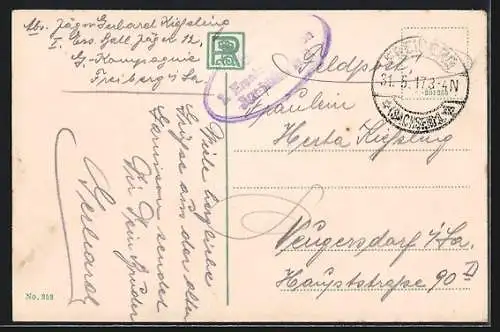 Abs. Jäger Gerhard Kießling
I. Ers. Batl. Jäger 12,
G.-Kompagnie
Freiberg i/Sa.
Viele herzliche
Grüße aus der alten
Garnison sendet
Dir Dein Bruder
Gerhard
No. 353
I. Ersatz
Feldpost
FREIBERG
31. 5. 17. 3-4N
(SACHSEN)
Fräulein
Herta Kießling
Neugersdorf i/Sa.
Hauptstraße 90 II